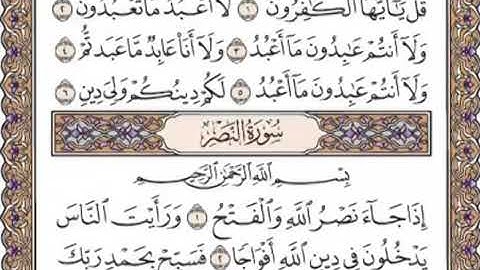 قُلْ يَٰٓأَيُّهَا ٱلْكَٰفِرُونَ ١ لَآ أَعْبُدُ مَا تَعْبُدُونَ ٢
وَلَآ أَنتُمْ عَٰبِدُونَ مَآ أَعْبُدُ ٣ وَلَآ أَنَا۠ عَابِدٌ مَّا عَبَدتُّمْ ٤
وَلَآ أَنتُمْ عَٰبِدُونَ مَآ أَعْبُدُ ٥ لَكُمْ دِينُكُمْ وَلِىَ دِينِ ٦
سُورَةُ النَّصْرِ
بِسْمِ ٱللَّهِ ٱلرَّحْمَٰنِ ٱلرَّحِيمِ
إِذَا جَآءَ نَصْرُ ٱللَّهِ وَٱلْفَتْحُ ١ وَرَأَيْتَ ٱلنَّاسَ
يَدْخُلُونَ فِى دِينِ ٱللَّهِ أَفْوَاجًا ٢ فَسَبِّحْ بِحَمْدِ رَبِّكَ